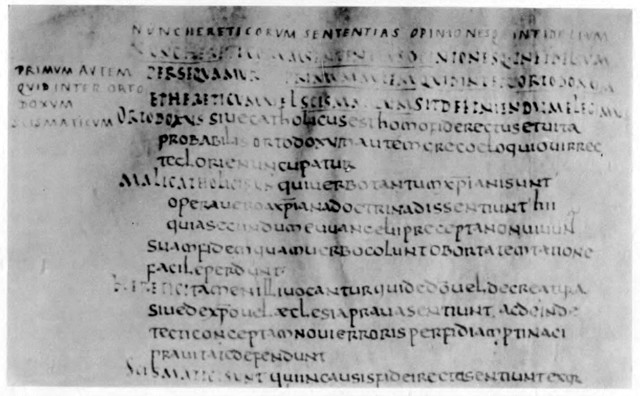 NUNC HERETICORUM SENTENTIAS OPINIONESQ INFIDELIUM
NUNC HERETICORUM SENTENTIAS OPINIONESQ INFIDELIUM
PRIMUM AUTEM
QUID INTER ORTO
DOXUM
SCISMATICUM
PERSEQUAMUR PRIMUM AUTEM QUID INTER ORTODOXUM
ET HERETICUM UEL SCISMATICUM SIT DEFINIENDUM ELEGIMUS
ORTODOXUS siue catholicus est homo fide rectus et uita
probabilis ortodoxum autem greco eloquio uir rec
te glorie nuncupatur
MALI CATHOLICI sunt qui uerbo tantum xpiani sunt
opera uero a xpiana doctrina dissentiunt hii
quia secundum euuangelii precepta non uiuun
suam fidem quam uerbo colunt oborta temtatione
facile perdunt
HERETICI tamen illi uocantur qui de do uel de creatura
siue de xpo uel aeclesia praua sentiunt, ac deinde
conceptam noui erroris perfidiam ptinaci
prauitate defendunt
SCISMATICI sunt qui in causis fidei recta sentiunt